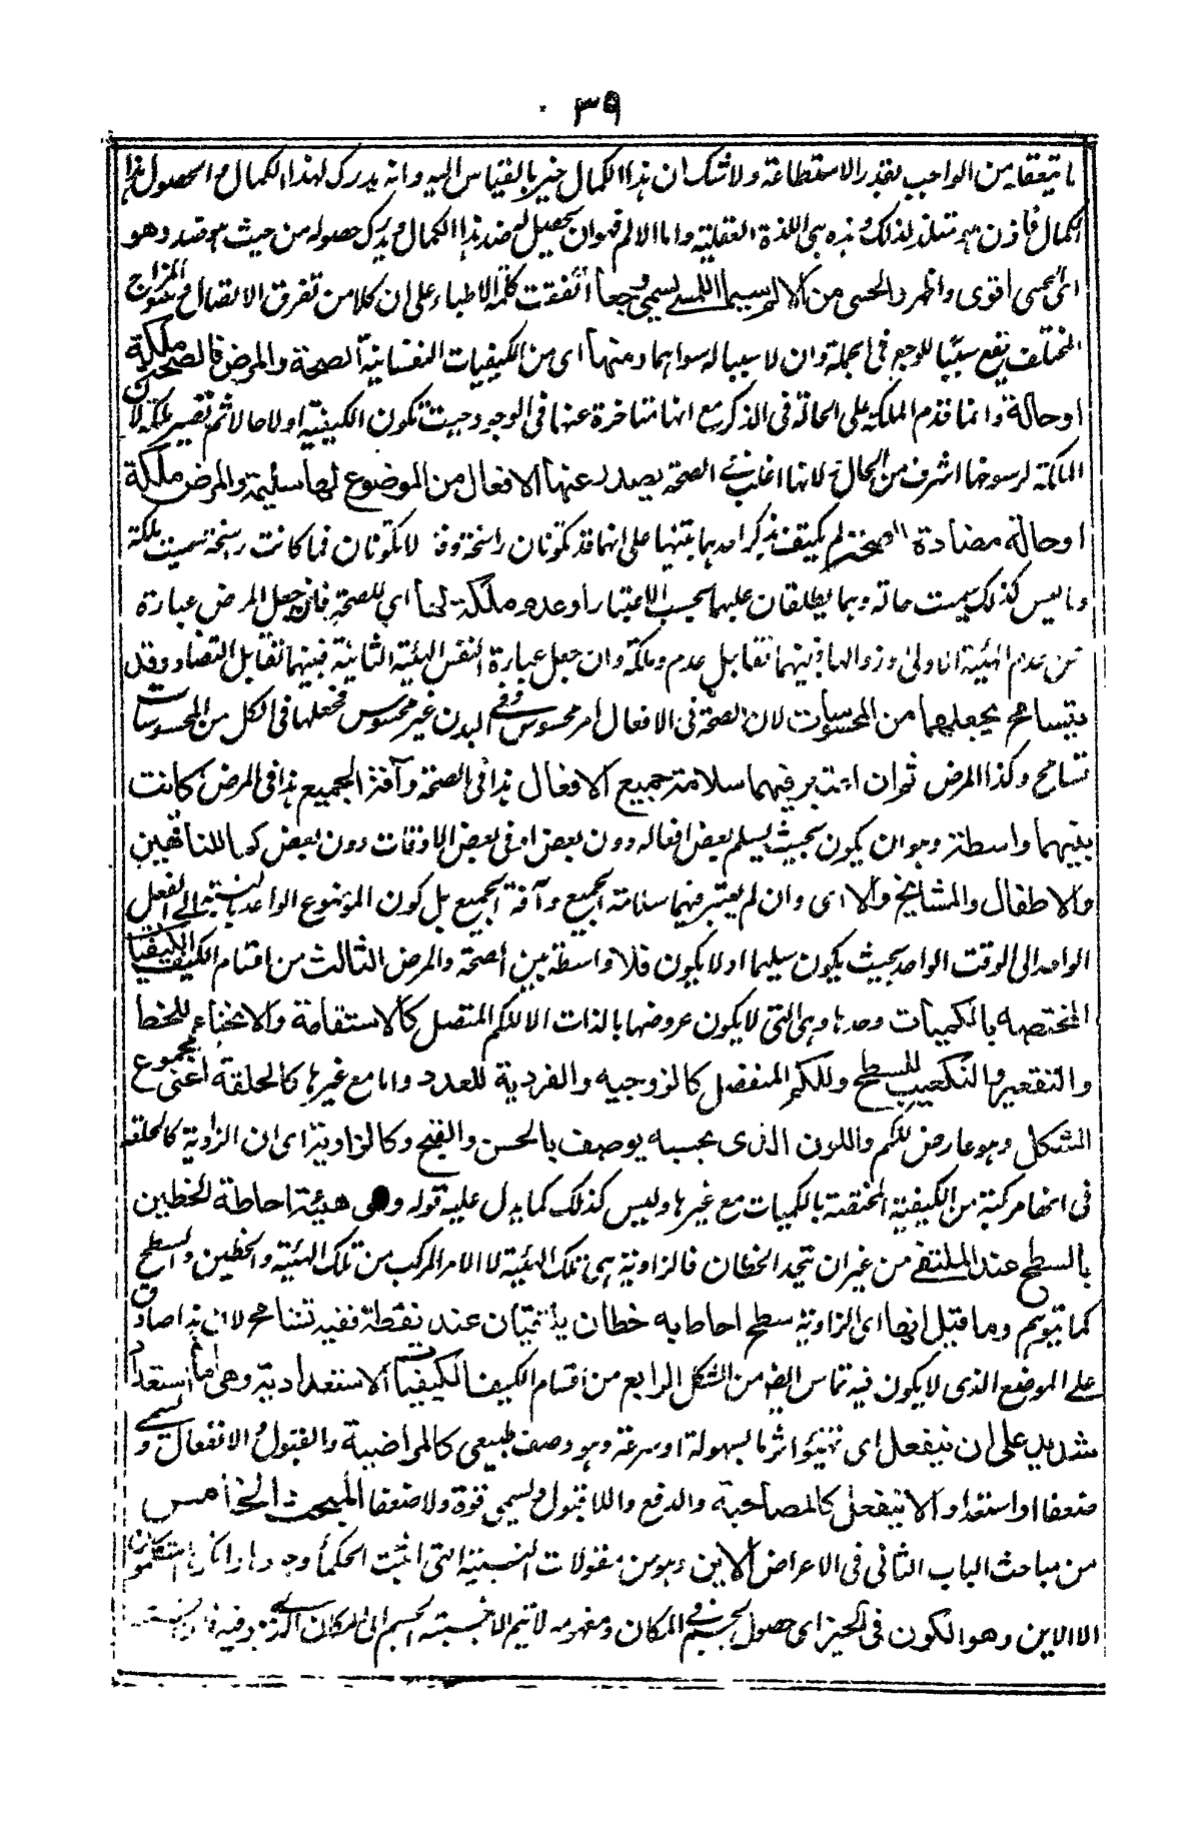 ٣٩
ما يتعقله من الواجب بقدر الاستطاعة ولا شك ان هذا الكمال خير بالقياس اليه وانه يدرك لهذا الكمال والحصول هذا
الكمال فاذن هو متلذ لذلك وهذه هى اللذة العقلية واما الالم فهو ان يحصل له ضد هذا الكمال ويدرك حصوله من حيث هو ضد وهو
اى الحسى اقوى واظهر والحسى من الالم سيما اللمسى يسمى وجعا اتفقت كلمة الاطباء على ان كلا من تفرق الاتصال وسوء المزاج
المختلف يقع سببا للوجع فى الجملة وان لا سبب له سواهما ومنها اى من الكيفيات النفسانية الصحة والمرض فالصحة ملكة
او حالة وانما قدم الملكة على الحالة فى الذكر مع انها متاخرة عنها فى الوجود حيث تكون الكيفية اولا حالا ثم تصير ملكة لان
الملكة لرسوخها اشرف من الحال لانها اغلب فى الصحة يصدر عنها الافعال من الموضوع لها سليمة والمرض ملكة
او حالة مضادة للصحة لم يكتف بذكر احدهما تنبيها على انهما قد تكونان راسخة وقد لا تكونان فما كانت راسخة سميت ملكة
وما ليس كذلك سميت حالة وربما يطلقان عليهما بحسب الاعتبار او عدم ملكة لها اى للصحة فان جعل المرض عبارة
عن عدم الهيئة الاولى وزوالها فبينهما تقابل عدم وملكة وان جعل عبارة النفس الهيئة الثانية فبينهما تقابل التضاد وقد
يتسامح بجعلهما من المحسوسات لان الصحة فى الافعال امر محسوس وفى البدن غير محسوس فجعلها فى الكل من المحسوسات
تسامح وكذا المرض ثم ان اعتبر فيهما سلامة جميع الافعال هذا فى الصحة وآفة الجميع هذا فى المرض كانت
بينهما واسطة وهو ان يكون بحيث يسلم بعض افعاله دون بعض او فى بعض الاوقات دون بعض كما للناقهين
والاطفال والمشايخ والا اى وان لم يعتبر فيهما سلامة الجميع وآفة الجميع بل كون الموضوع الواحد بالنسبة الى الفعل
الواحد الى الوقت الواحد بحيث يكون سليما او لا يكون فلا واسطة بين الصحة والمرض الثالث من اقسام الكيف الكيفيات
المختصه بالكميات وحدها وهى التى لا يكون عروضها بالذات الا للكم المتصل كالاستقامة والانحناء للخط
والتقعير والتكعيب للسطح وللكم المنفصل كالزوجيه والفردية للعدد واما مع غيرها كالخلقة اعنى مجموع
الشكل وهو عارض للكم واللون الذى بحسبه يوصف بالحسن والقبح وكالزاوية اى ان الزاوية كالخلقة
فى انها مركبة من الكيفية المختصة بالكميات مع غيرها وليس كذلك كما يدل عليه قوله وهى هيئة احاطة الخطين
بالسطح عند الملتقى من غير ان يتحد الخطان فالزاوية هى تلك الهيئة لا الامر المركب من تلك الهيئة والخطين والسطح
كما يتوهم وما قيل انها اى الزاوية سطح احاط به خطان يلتقيان عند نقطة ففيه تسامح لان هذا صادق
على الموضع الذى لا يكون فيه تماس ايضا من الشكل الرابع من اقسام الكيف الكيفيات الاستعدادية وهى اما استعداد
شديد على ان ينفعل اى تهيؤ اثر ما بسهولة او سرعة وهو وصف طبيعى كالمراضية والقبول والانفعال ويسمى
ضعفا او استعداد لا ينفعل كالمصاحبة والدفع واللا قبول ويسمى قوة ولا ضعفا المبحث الخامس
من مباحث الباب الثانى فى الاعراض الاين وهو من مقولات النسبية التى اثبت الحكماء وجودها وانكرها المتكلمون
الا الاين وهو الكون فى الحيز اى حصول الجسم فى المكان ومفهومه لا يتم الا بنسبة الجسم الى المكان الذى هو فيه